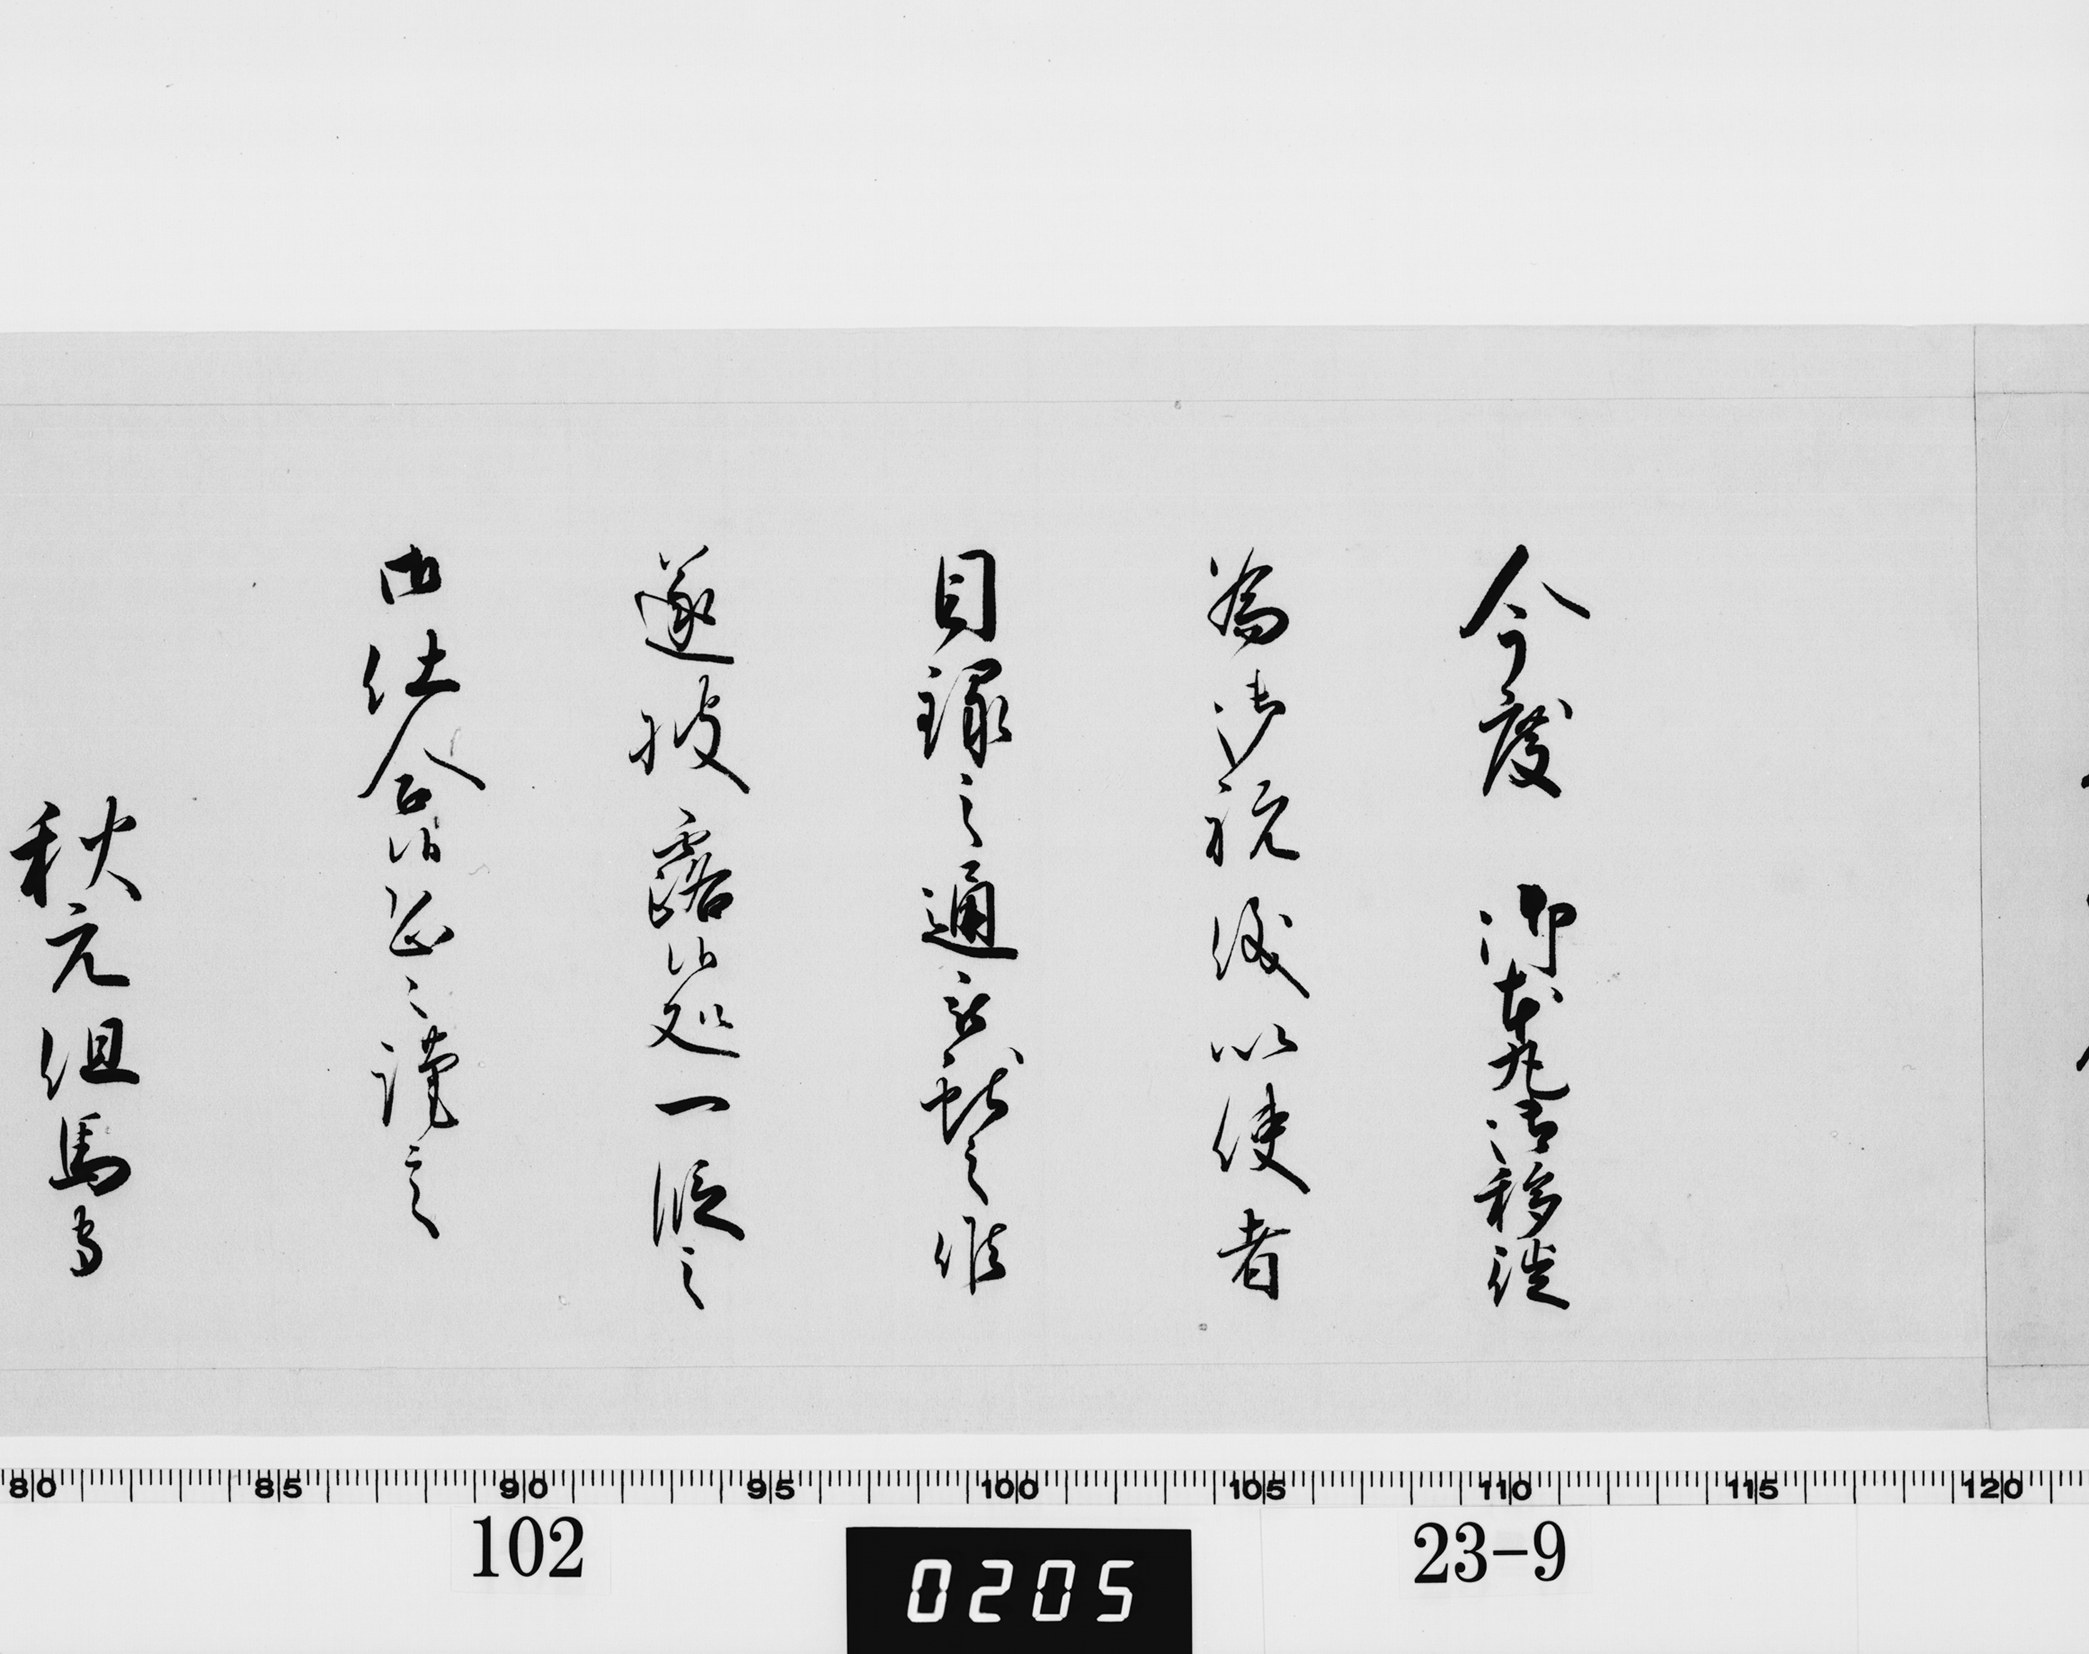 今度 御本丸御移徙
為御祝儀以使者
目録之通被献之候
遂披露候処一段之
御仕合候恐々謹言
秋元但馬守
80 85 90 95 100 105 110 115 120
102
0205
23-9